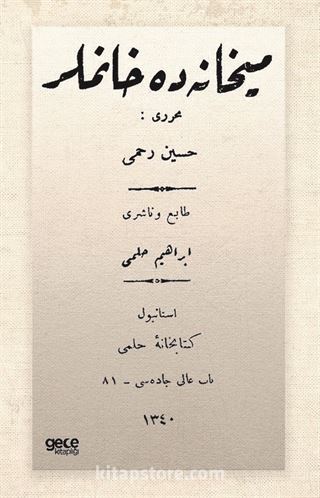 میخانه‌ده خانملر
محرری :
حسین رحمی
طابع و ناشری
ابراهیم حلمی
استانبول
کتابخانهٔ حلمی
باب عالی جاده‌سی - ٨١
١٣٤٠
gece
kitaplığı
kitapstore.com